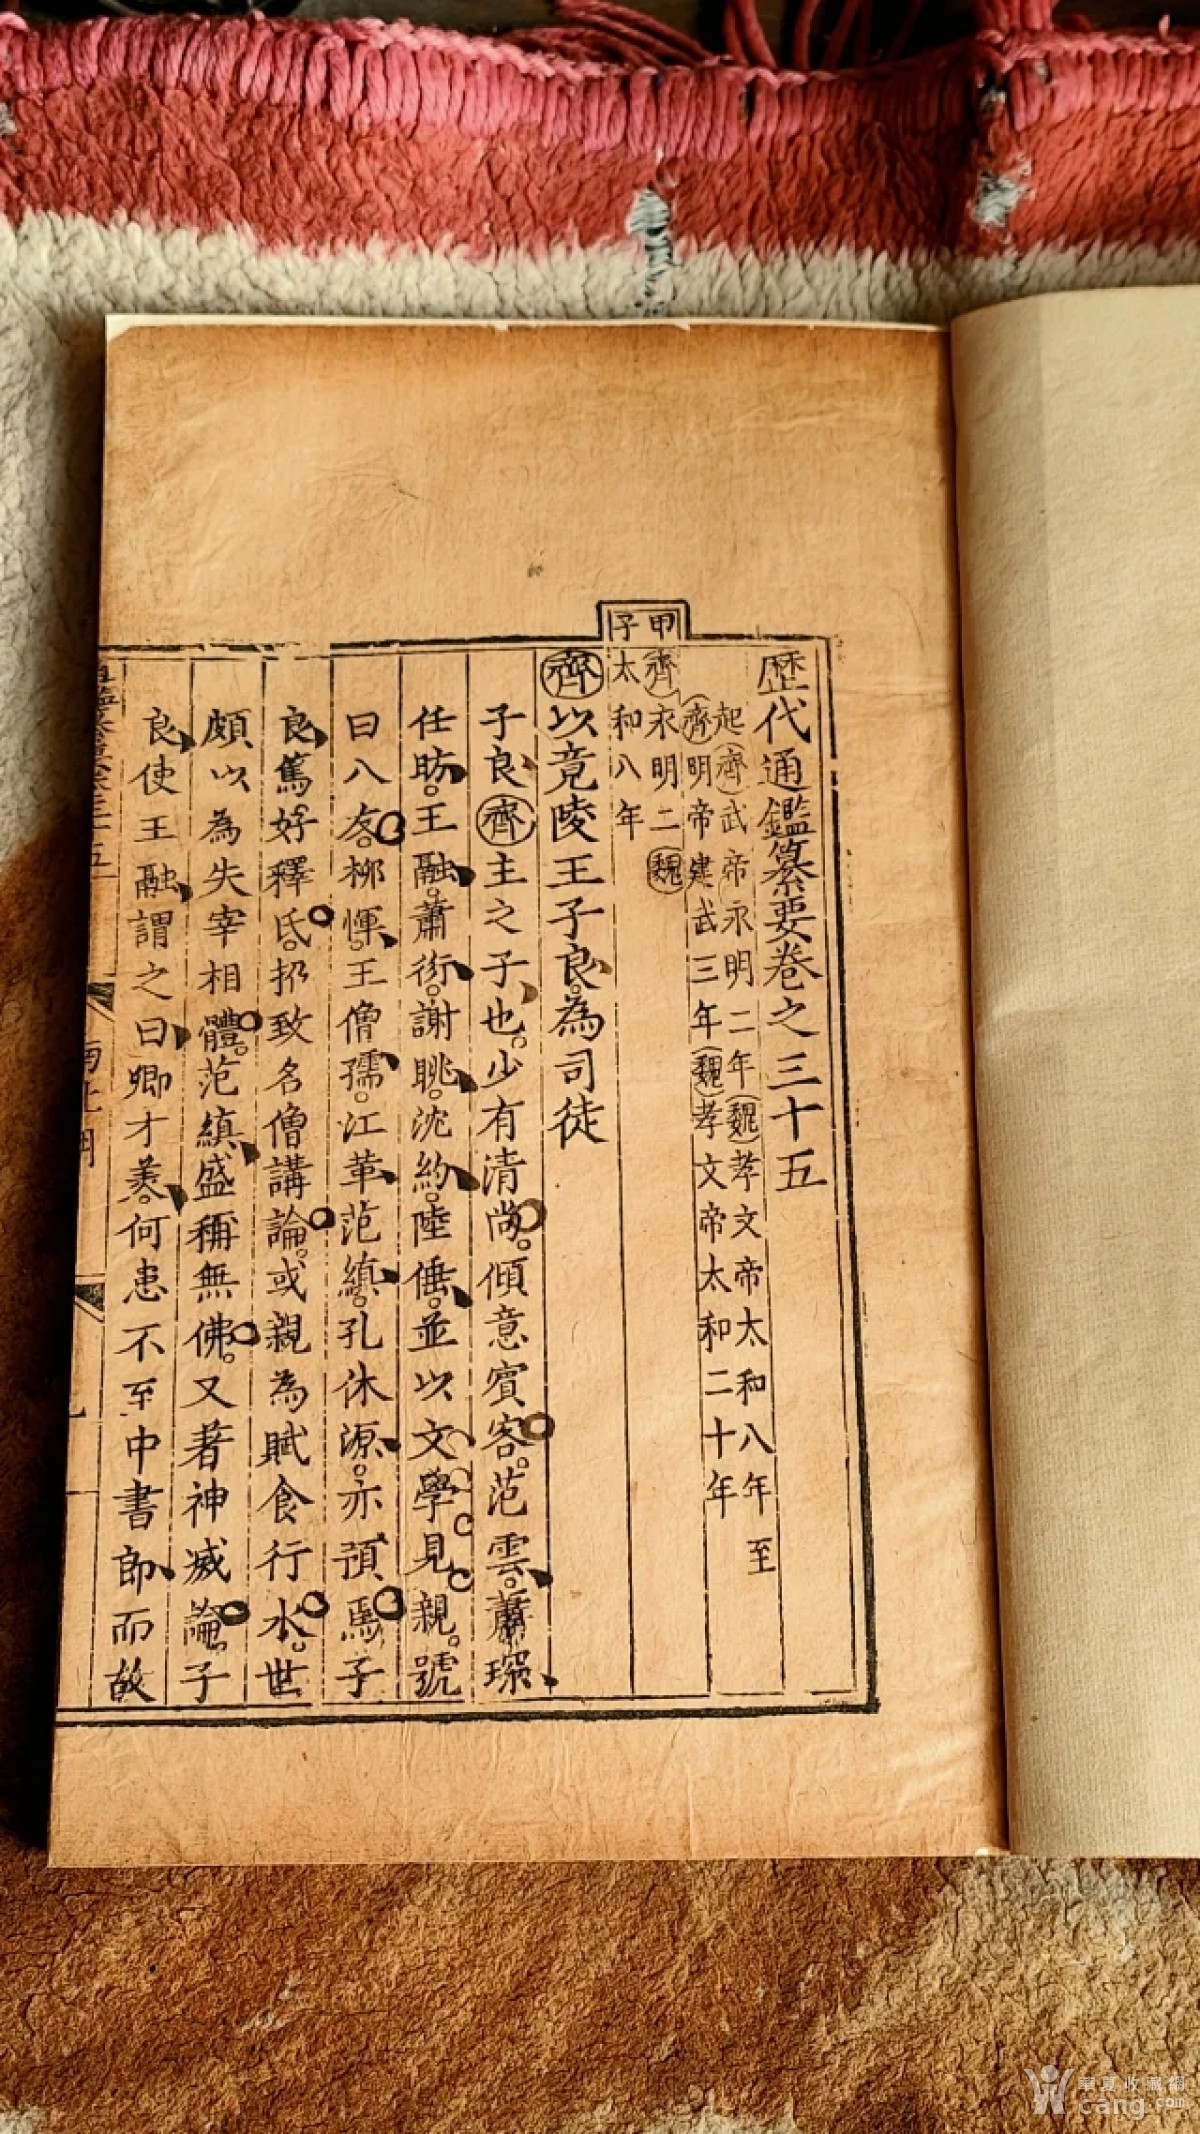 歷代通鑑纂要卷之三十五
起齊武帝永明二年魏孝文帝太和八年至
齊明帝建武三年魏孝文帝太和二十年
甲子
齊永明二魏
太和八年
齊以竟陵王子良。為司徒
子良齊主之子也。少有清尚。傾意賓客。范雲。蕭琛
任昉。王融。蕭衍。謝朓。沈約。陸倕。並以文學見親。號
曰八友。柳惲。王僧孺。江革。范縝。孔休源。亦預焉子
良篤。好釋氏。招致名僧講論。或親為賦食行水。世
頗以為失宰相體。范縝盛稱無佛。又著神滅論。子
良使王融謂之曰卿才美。何患不至中書郎而故
華夏收藏網
cang.com